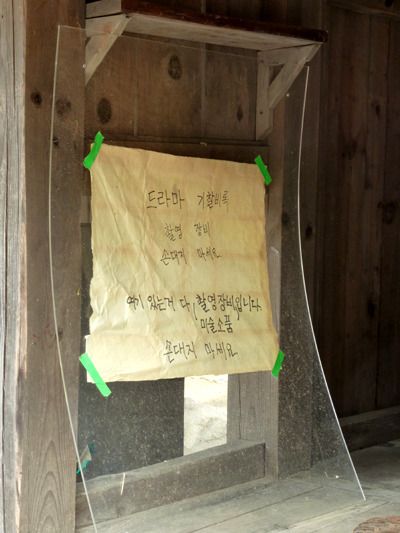 드라마 기찰비록
촬영 장비
손대지 마세요
여기 있는거 다 촬영장비입니다.
미술소품
손대지 마세요